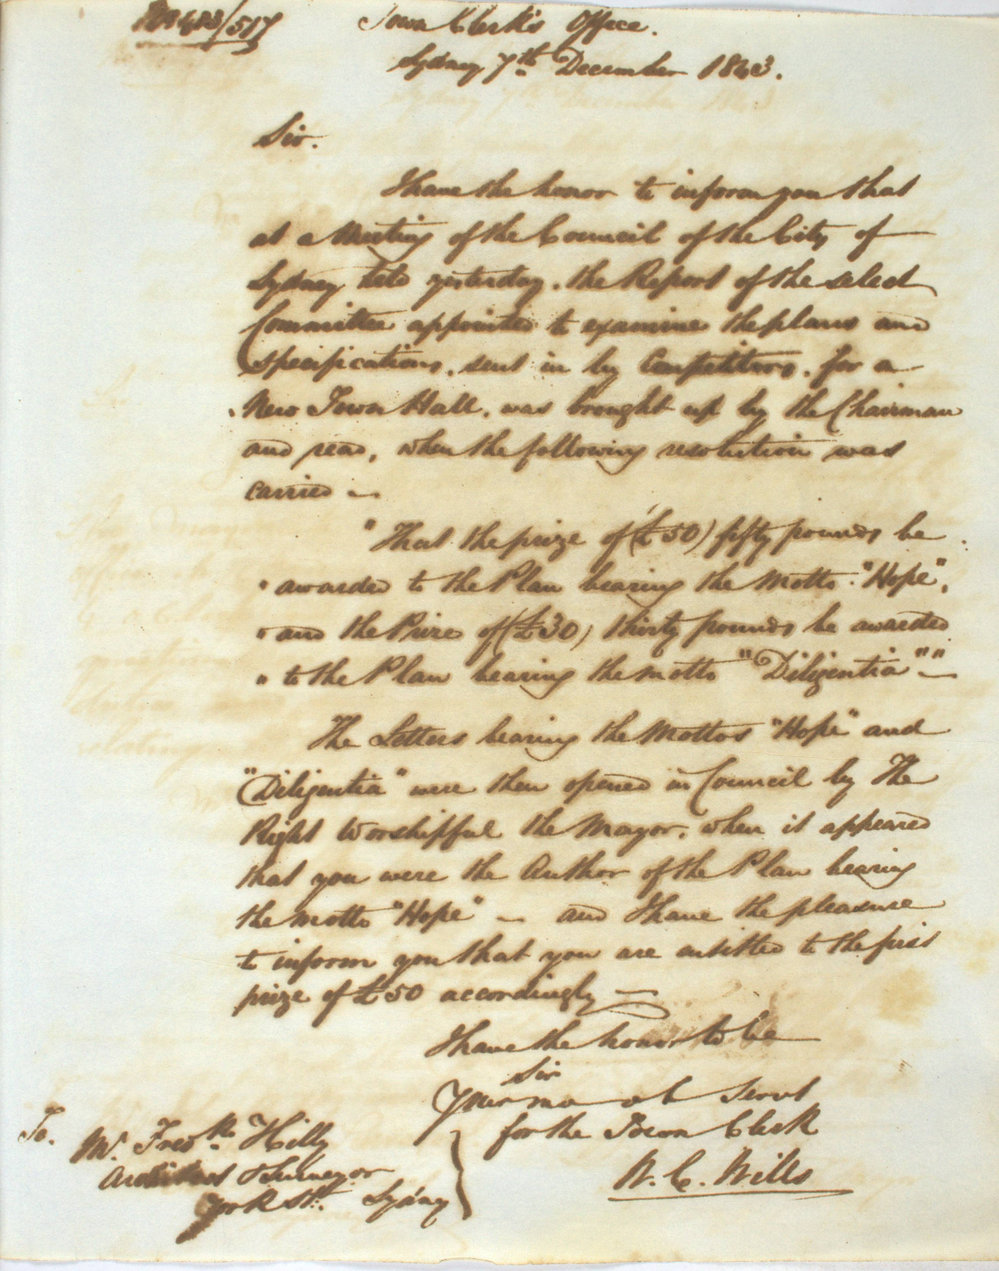 Town Clerk's Office.
Sydney 7th December 1843.
Sir.
I have the honor to inform you that
at a Meeting of the Council of the City of
Sydney held yesterday. the Report of the select
Committee appointed to examine the plans and
specifications. sent in by Competitors. for a
New Town Hall. was brought up by the Chairman
and read, when the following resolution was
carried —
"That the prize of (£50) fifty pounds be
" awarded to the Plan bearing the motto "Hope",
" and the Prize of (£30) thirty pounds be awarded
" to the Plan bearing the motto "Diligentia"" —
The Letters bearing the Mottos "Hope" and
"Diligentia" were then opened in Council by The
Right Worshipful the Mayor. when it appeared
that you were the Author of the Plan bearing
the motto "Hope" — and I have the pleasure
to inform you that you are entitled to the first
prize of £50 accordingly —
I have the honor to be
Sir
Your mo ob Servt
for the Town Clerk
W. C. Wills
To.
Mr. Fredk Hilly
Architect & Surveyor
York St. Sydney